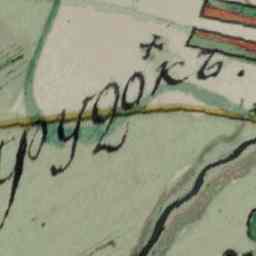 рудокъ.